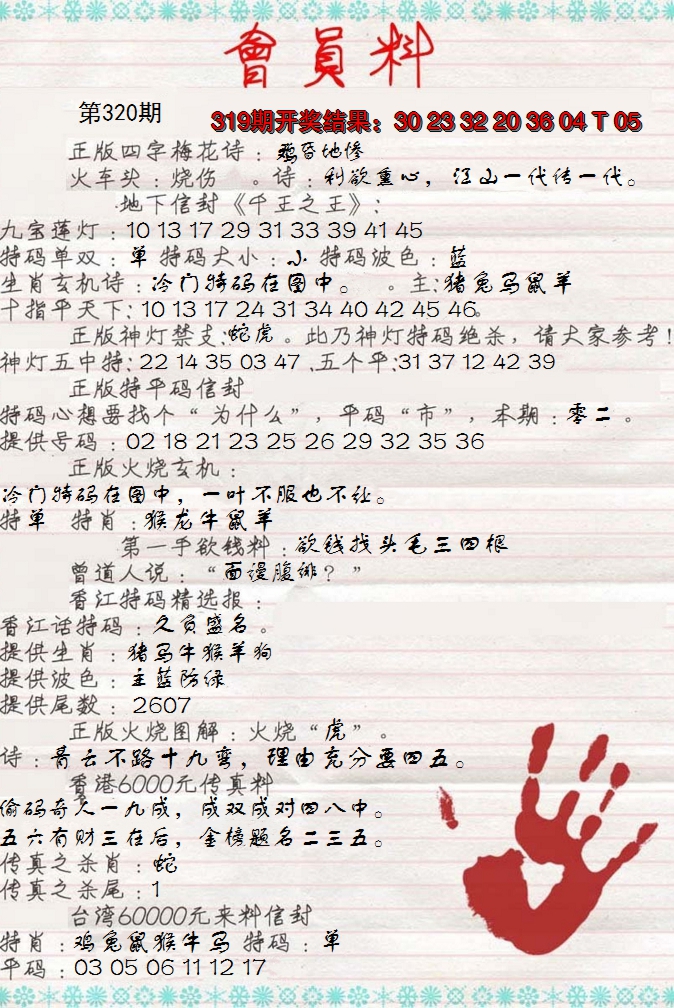 會員料
第320期
319期开奖结果：30 23 32 20 36 04 T 05
正版四字梅花诗：鸡昏地惨
火车头：烧伤 。诗：利欲熏心，江山一代传一代。
地下信封《千王之王》：
九宝莲灯：10 13 17 29 31 33 39 41 45
特码单双：单 特码大小：小 特码波色：蓝
生肖玄机诗：冷门特码在图中。 。主：猪兔马鼠羊
十指平天下：10 13 17 24 31 34 40 42 45 46。
正版神灯禁支：蛇虎。此乃神灯特码绝杀，请大家参考！
神灯五中特：22 14 35 03 47 .五个平：31 37 12 42 39
正版特平码信封
特码心想要找个“为什么”，平码“市”，本期：零二。
提供号码：02 18 21 23 25 26 29 32 35 36
正版火烧玄机：
冷门特码在图中，一叶不服也不让。
特单 特肖：猴龙牛鼠羊
第一手欲钱料：欲钱找头毛三四根
曾道人说：“面谩腹诽？”
香江特码精选报：
香江话特码：久负盛名。
提供生肖：猪马牛猴羊狗
提供波色：主蓝防绿
提供尾数：2607
正版火烧图解：火烧“虎”。
诗：青云不路十九弯，理由充分要四五。
香港6000元传真料
偷码奇人一九成，成双成对四八中。
五六有财三在后，金榜题名二三五。
传真之杀肖：蛇
传真之杀尾：1
台湾60000元来料信封
特肖：鸡兔鼠猴牛马 特码：单
平码：03 05 06 11 12 17